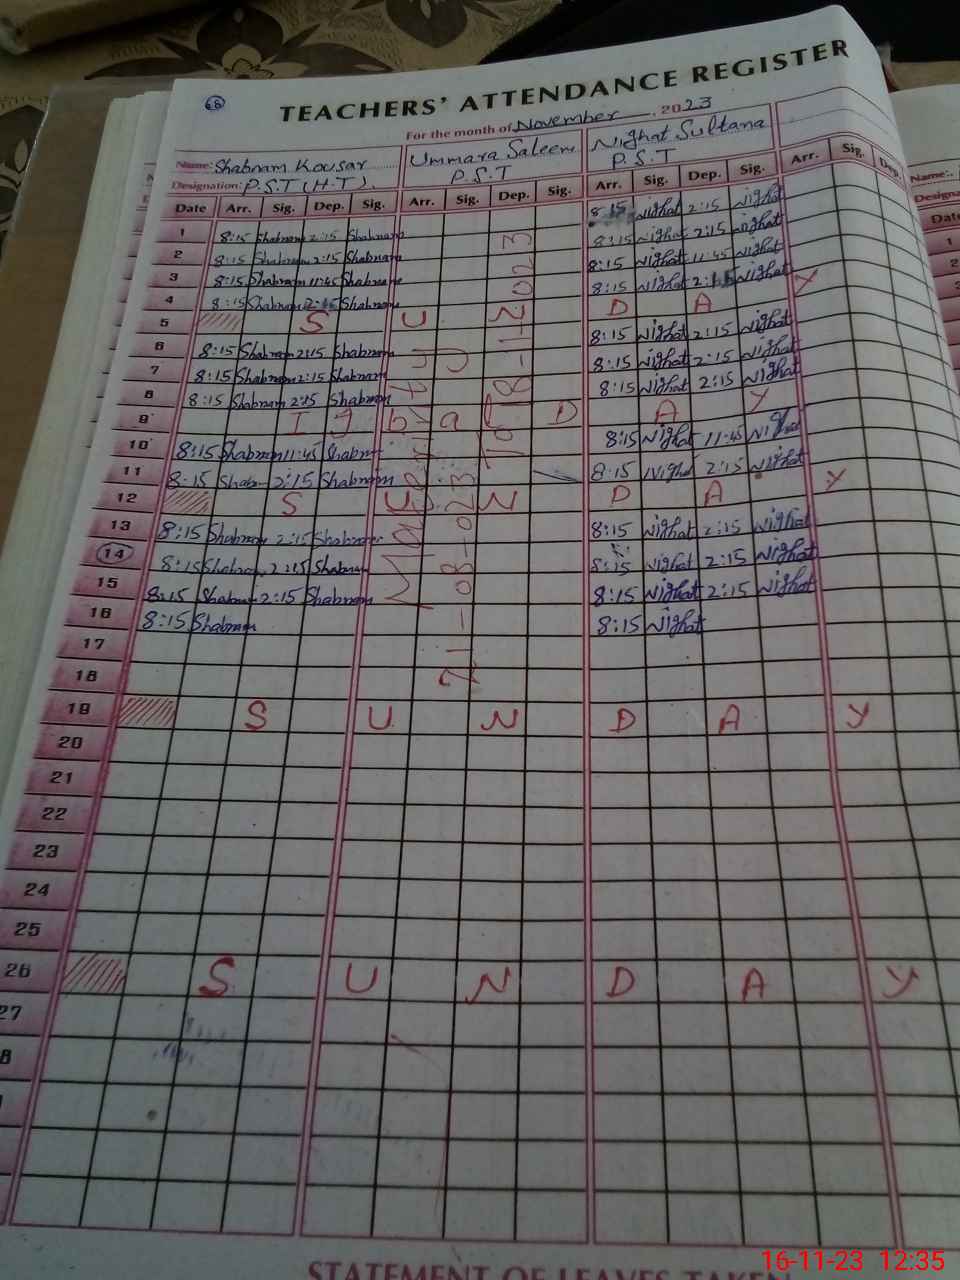 68
TEACHERS' ATTENDANCE REGISTER
For the month of November 2023
Name: Shabnam Kousar Ummara Saleem Nighat Sultana
Designation: P.S.T (H.T). P.S.T P.S.T
Date Arr. Sig. Dep. Sig. Arr. Sig. Dep. Sig. Arr. Sig. Dep. Sig. Arr. Sig. Dep.
8:15 Nighat 2:15 Nighat
1 8:15 Shabnam 2:15 Shabnam 8:15 Nighat 2:15 Nighat
2 8:15 Shabnam 2:15 Shabnam 8:15 Nighat 11:45 Nighat
3 8:15 Shabnam 11:45 Shabnam 8:15 Nighat 2:15 Nighat
4 8:15 Shabnam 2:15 Shabnam
5 S U N D A Y
6 8:15 Shabnam 2:15 Shabnam 8:15 Nighat 2:15 Nighat
7 8:15 Shabnam 2:15 Shabnam 8:15 Nighat 2:15 Nighat
8 8:15 Shabnam 2:15 Shabnam 8:15 Nighat 2:15 Nighat
9 I q b a l D A Y
10 8:15 Shabnam 11:45 Shabnam 8:15 Nighat 11:45 Nighat
11 8:15 Shabnam 2:15 Shabnam 8:15 Nighat 2:15 Nighat
12 S U N D A Y
13 8:15 Shabnam 2:15 Shabnam 8:15 Nighat 2:15 Nighat
14 8:15 Shabnam 2:15 Shabnam 8:15 Nighat 2:15 Nighat
15 8:15 Shabnam 2:15 Shabnam 8:15 Nighat 2:15 Nighat
16 8:15 Shabnam 8:15 Nighat
17
18
19 S U N D A Y
20
21
22
23
24
25
26 S U N D A Y
27
8
Maternity
21-08-023 To 18-11-2023
STATEMENT OF LEAVES TAKEN
Name:
Date
1
2
16-11-23 12:35